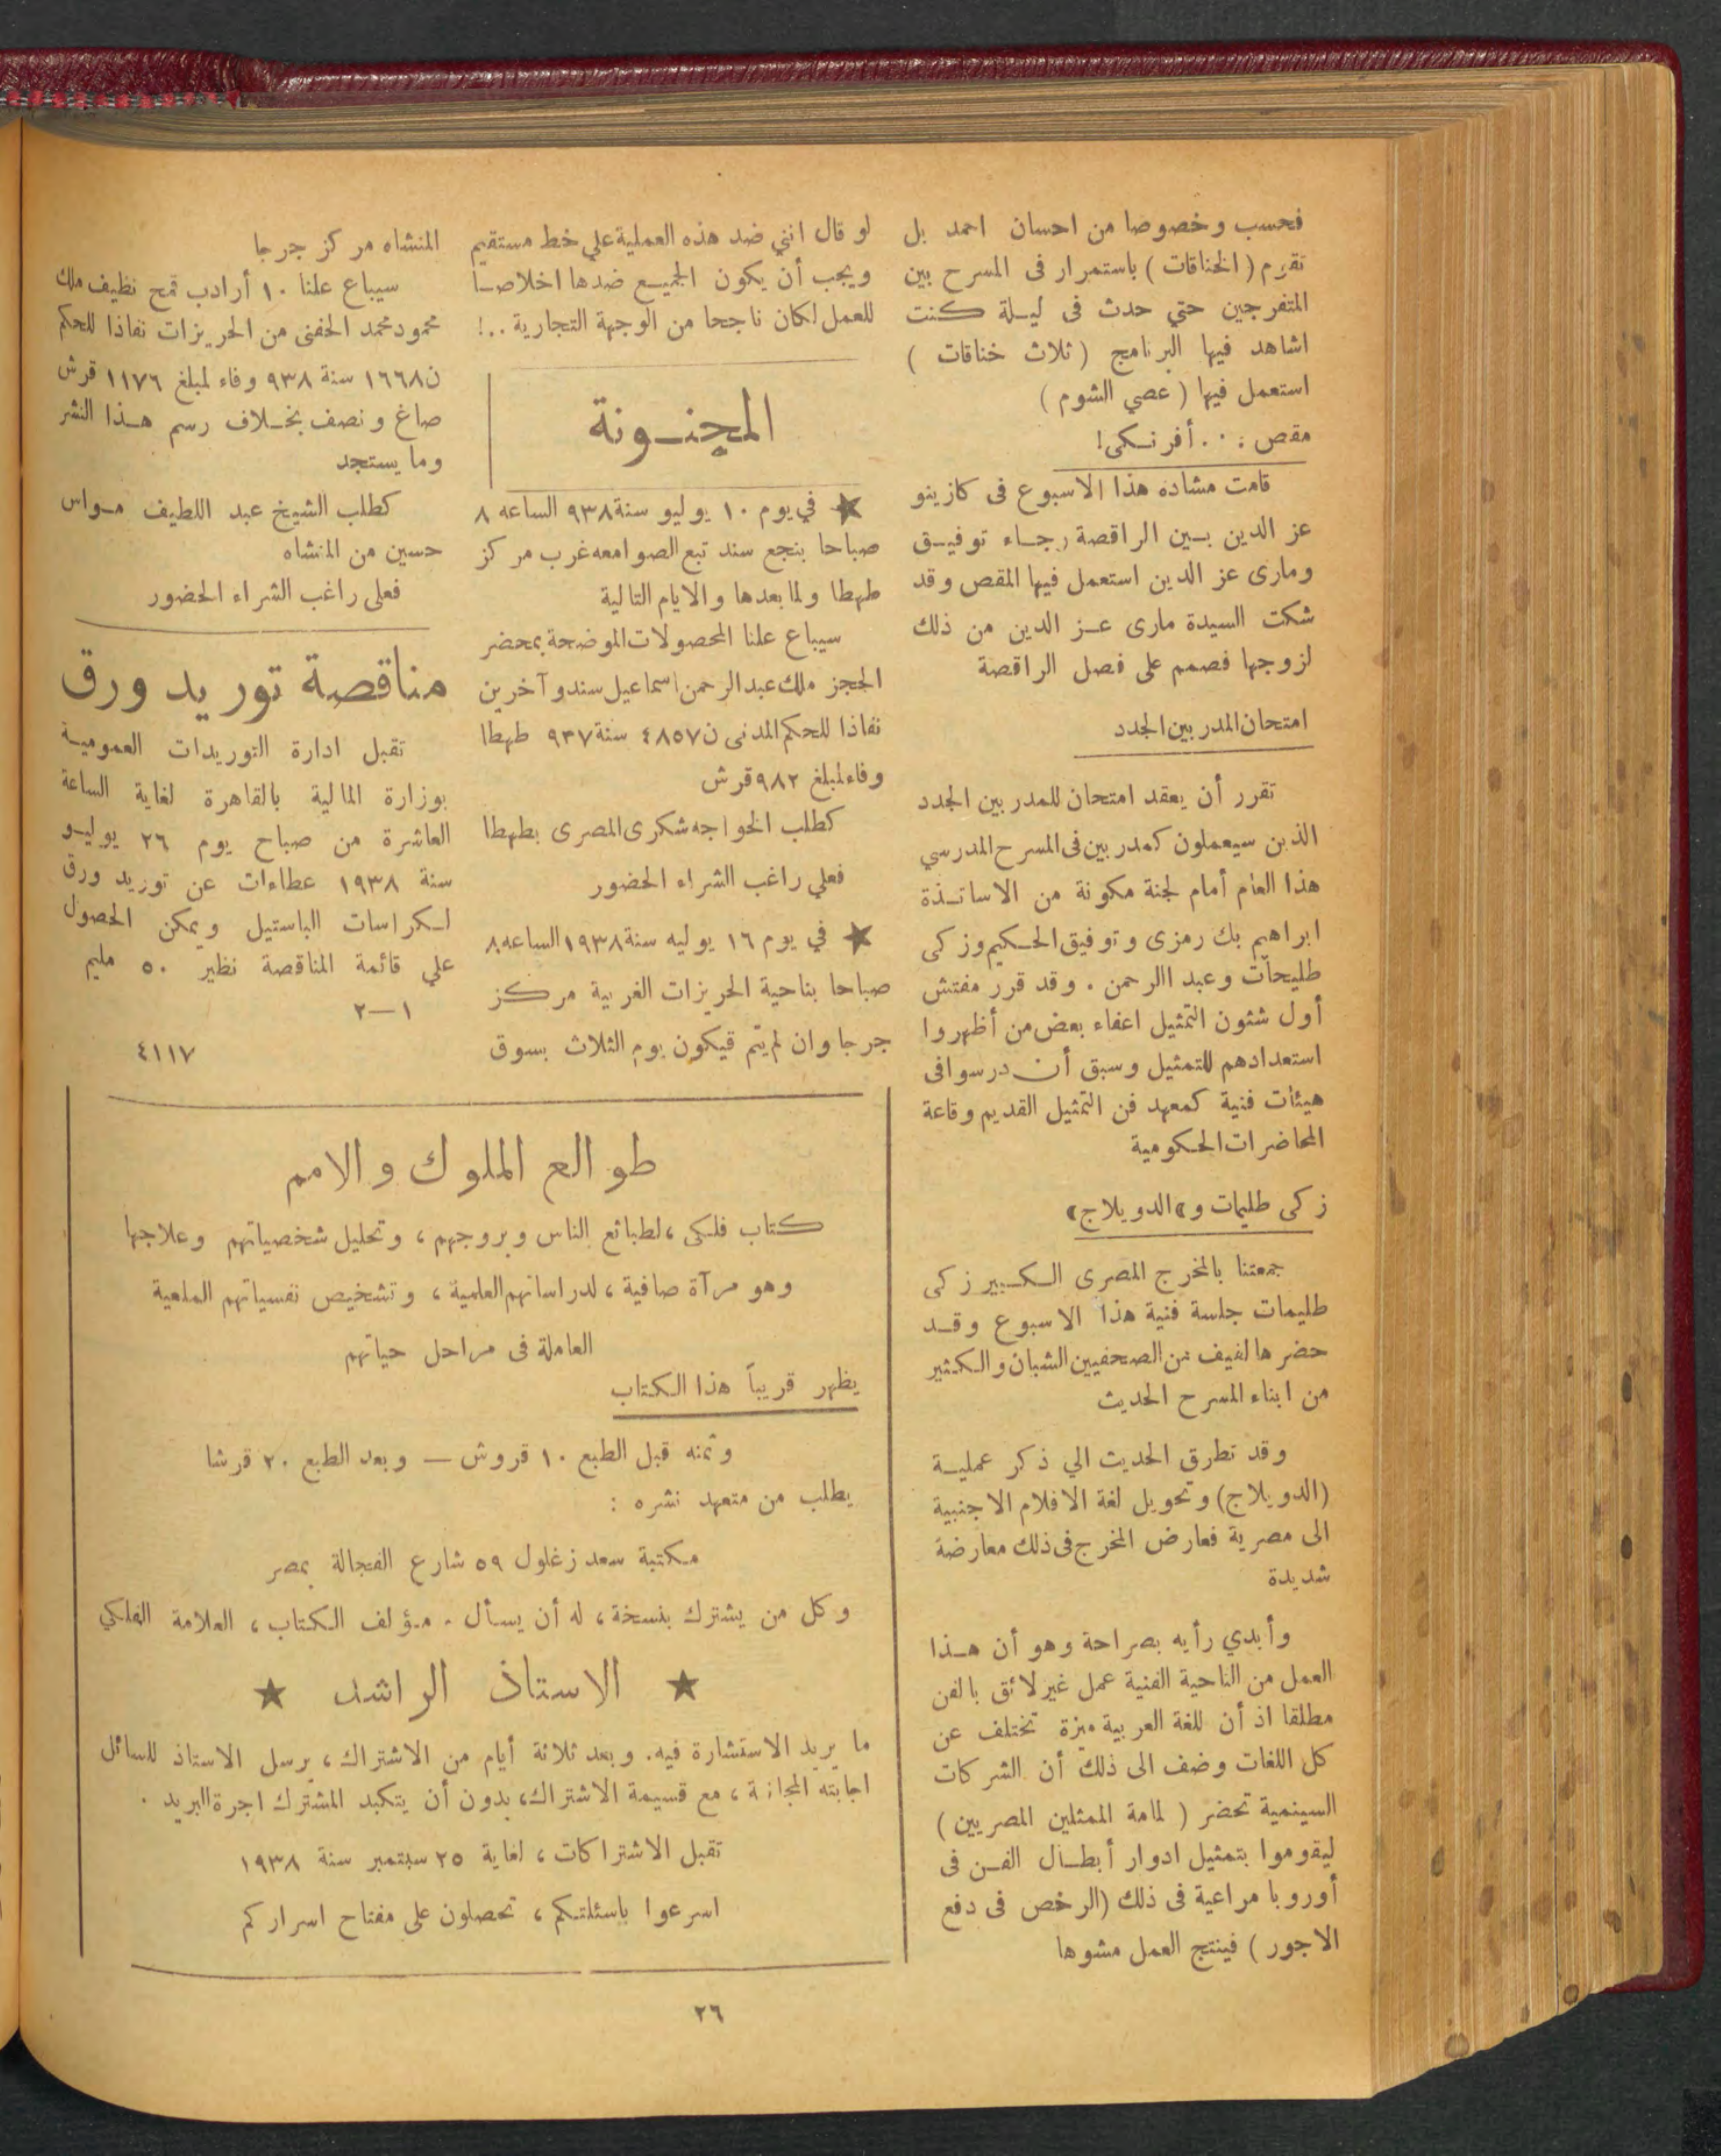 فحسب وخصوصا من احسان احمد بل
تقوم (الخناقات) باستمرار فى المسرح بين
المتفرجين حتي حدث فى ليلة كنت
اشاهد فيها البرنامج (ثلاث خناقات)
استعمل فيها (عصي الشوم)
مقص . . . أفرنكى!
قامت مشاده هذا الاسبوع فى كازينو
عز الدين بين الراقصة رجاء توفيق
ومارى عز الدين استعمل فيها المقص وقد
شكت السيدة مارى عز الدين من ذلك
لزوجها فصمم على فصل الراقصة
امتحان المدربين الجدد
تقرر أن يعقد امتحان للمدربين الجدد
الذين سيعملون كمدربين فى المسرح المدرسي
هذا العام أمام لجنة مكونة من الاساتذة
ابراهيم بك رمزى وتوفيق الحكيم وزكى
طليحات وعبد االرحمن . وقد قرر مفتش
أول شئون التمثيل اعفاء بعض من أظهروا
استعدادهم للتمثيل وسبق أن درسوا فى
هيئات فنية كمعهد فن التمثيل القديم وقاعة
المحاضرات الحكومية
زكى طليمات و«الدوبلاج»
جمعتنا بالمخرج المصرى الكبير زكى
طليمات جلسة فنية هذا الاسبوع وقد
حضرها لفيف من الصحفيين الشبان والكثير
من ابناء المسرح الحديث
وقد تطرق الحديث الي ذكر عملية
(الدوبلاج) وتحويل لغة الافلام الاجنبية
الى مصرية فعارض المخرج فى ذلك معارضة
شديدة
وأبدي رأيه بصراحة وهو أن هذا
العمل من الناحية الفنية عمل غير لائق بالفن
مطلقا اذ أن للغة العربية ميزة تختلف عن
كل اللغات وضف الى ذلك أن الشركات
السينمية تحضر (لمامة الممثلين المصريين)
ليقوموا بتمثيل ادوار أبطال الفن فى
أوروبا مراعية فى ذلك (الرخص فى دفع
الاجور) فينتج العمل مشوها
لو قال انني ضد هذه العملية علي خط مستقيم
ويجب أن يكون الجميع ضدها اخلاصا
للعمل لكان ناجحا من الوجهة التجارية ..!
المجنونة
★ في يوم ١٠ يوليو سنة ٩٣٨ الساعه ٨
صباحا بنجع سند تبع الصوامعه غرب مركز
طهطا ولما بعدها والايام التالية
سيباع علنا المحصولات الموضحة بمحضر
الحجز ملك عبد الرحمن اسماعيل سند وآخرين
نفاذا للحكم المدنى ن ٤٨٥٧ سنة ٩٣٧ طهطا
وفاء لمبلغ ٩٨٢ قرش
كطلب الخواجه شكرى المصرى بطهطا
فعلي راغب الشراء الحضور
★ في يوم ١٦ يوليه سنة ١٩٣٨ الساعه ٨
صباحا بناحية الحريزات الغربية مركز
جرجا وان لم يتم قيكون يوم الثلاث بسوق
المنشاه مركز جرجا
سيباع علنا ١٠ أرادب قمح نظيف ملك
محمود محمد الحفنى من الحريزات نفاذا للحكم
ن ١٦٦٨ سنة ٩٣٨ وفاء لمبلغ ١١٧٦ قرش
صاغ ونصف بخلاف رسم هذا النشر
وما يستجد
كطلب الشيخ عبد اللطيف مواس
حسين من المنشاه
فعلى راغب الشراء الحضور
مناقصة توريد ورق
تقبل ادارة التوريدات العمومية
بوزارة المالية بالقاهرة لغاية الساعة
العاشرة من صباح يوم ٢٦ يوليو
سنة ١٩٣٨ عطاءات عن توريد ورق
لكراسات الباستيل ويمكن الحصول
علي قائمة المناقصة نظير ٥٠ مليم
١—٢
٤١١٧
طوالع الملوك والامم
كتاب فلكى ، لطبائع الناس وبروجهم ، وتحليل شخصياتهم وعلاجها
وهو مرآة صافية ، لدراساتهم العلمية ، وتشخيص نفسياتهم الملعية
العاملة فى مراحل حياتهم
يظهر قريباً هذا الكتاب
وثمنه قبل الطبع ١٠ قروش — وبعد الطبع ٢٠ قرشا
يطلب من متعهد نشره :
مكتبة سعد زغلول ٥٩ شارع الفجالة بمصر
وكل من يشترك بنسخة ، له أن يسأل . مؤلف الكتاب ، العلامة الفلكي
★ الاستاذ الراشد ★
ما يريد الاستشارة فيه. وبعد ثلاثة أيام من الاشتراك ، يرسل الاستاذ للسائل
اجابته المجانية ، مع قسيمة الاشتراك، بدون أن يتكبد المشترك اجرة البريد .
تقبل الاشتراكات ، لغاية ٢٥ سبتمبر سنة ١٩٣٨
اسرعوا باسئلتكم ، تحصلون على مفتاح اسراركم
٢٦